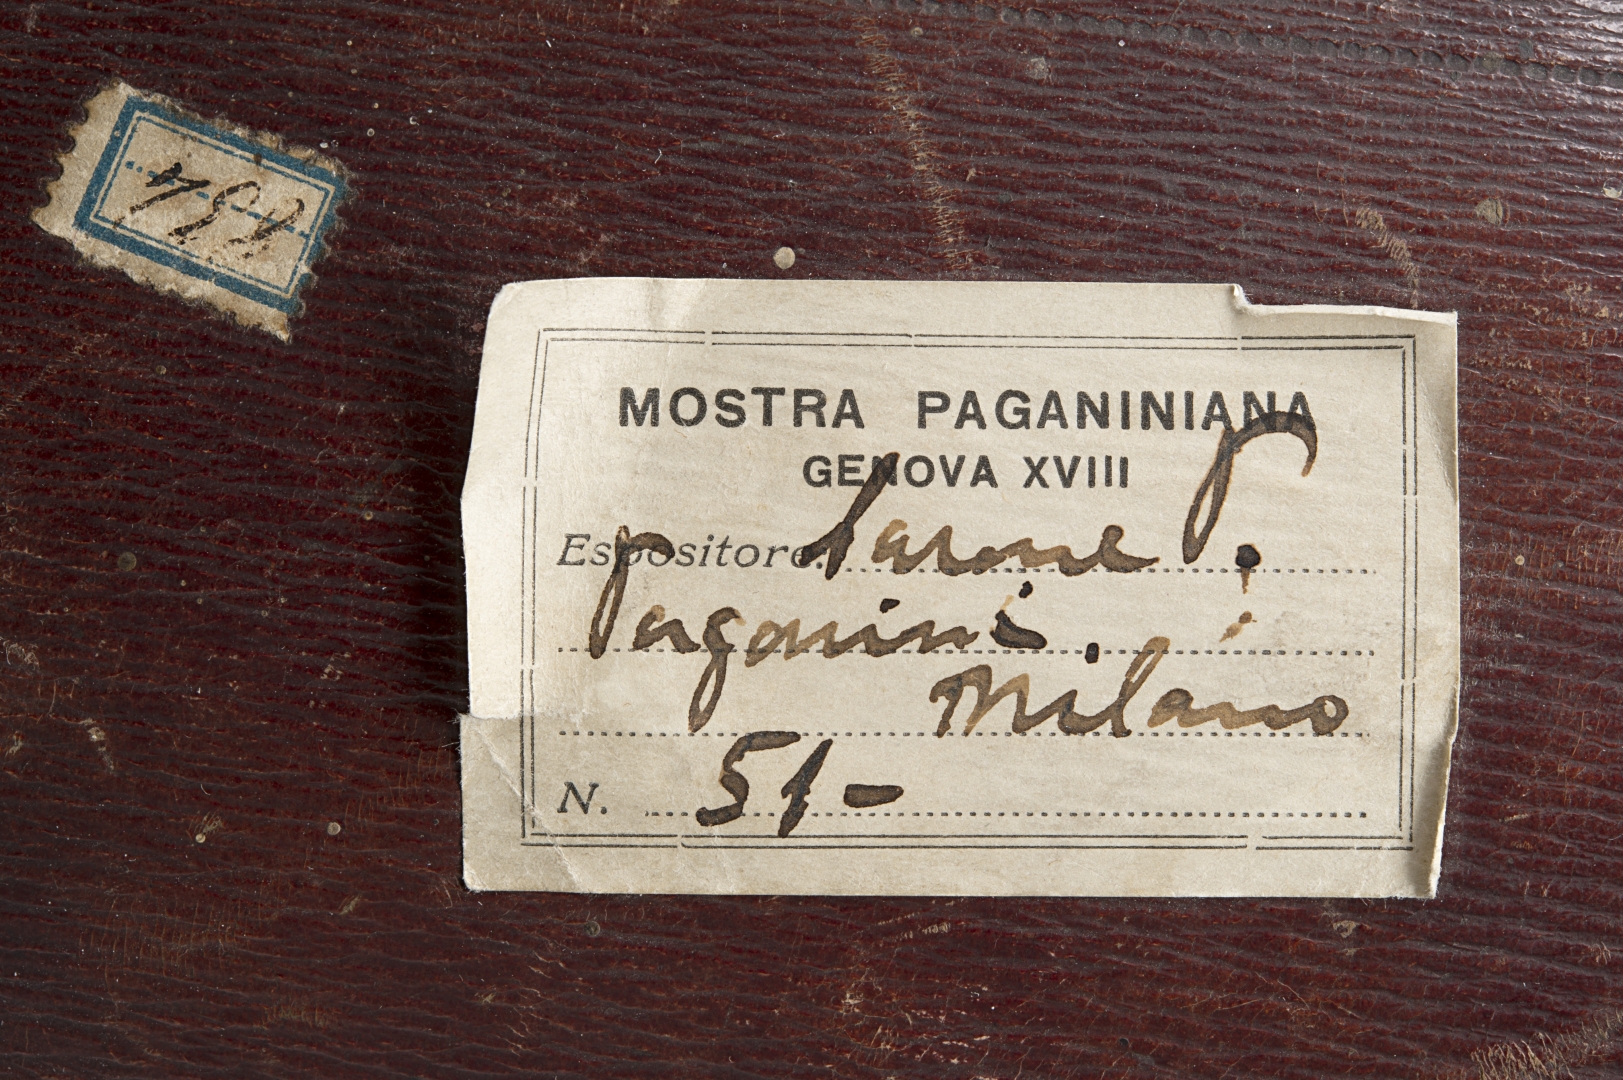 MOSTRA PAGANINIANA
GENOVA XVIII
Espositore: Barone P.
Paganini.
Milano
N. 51-